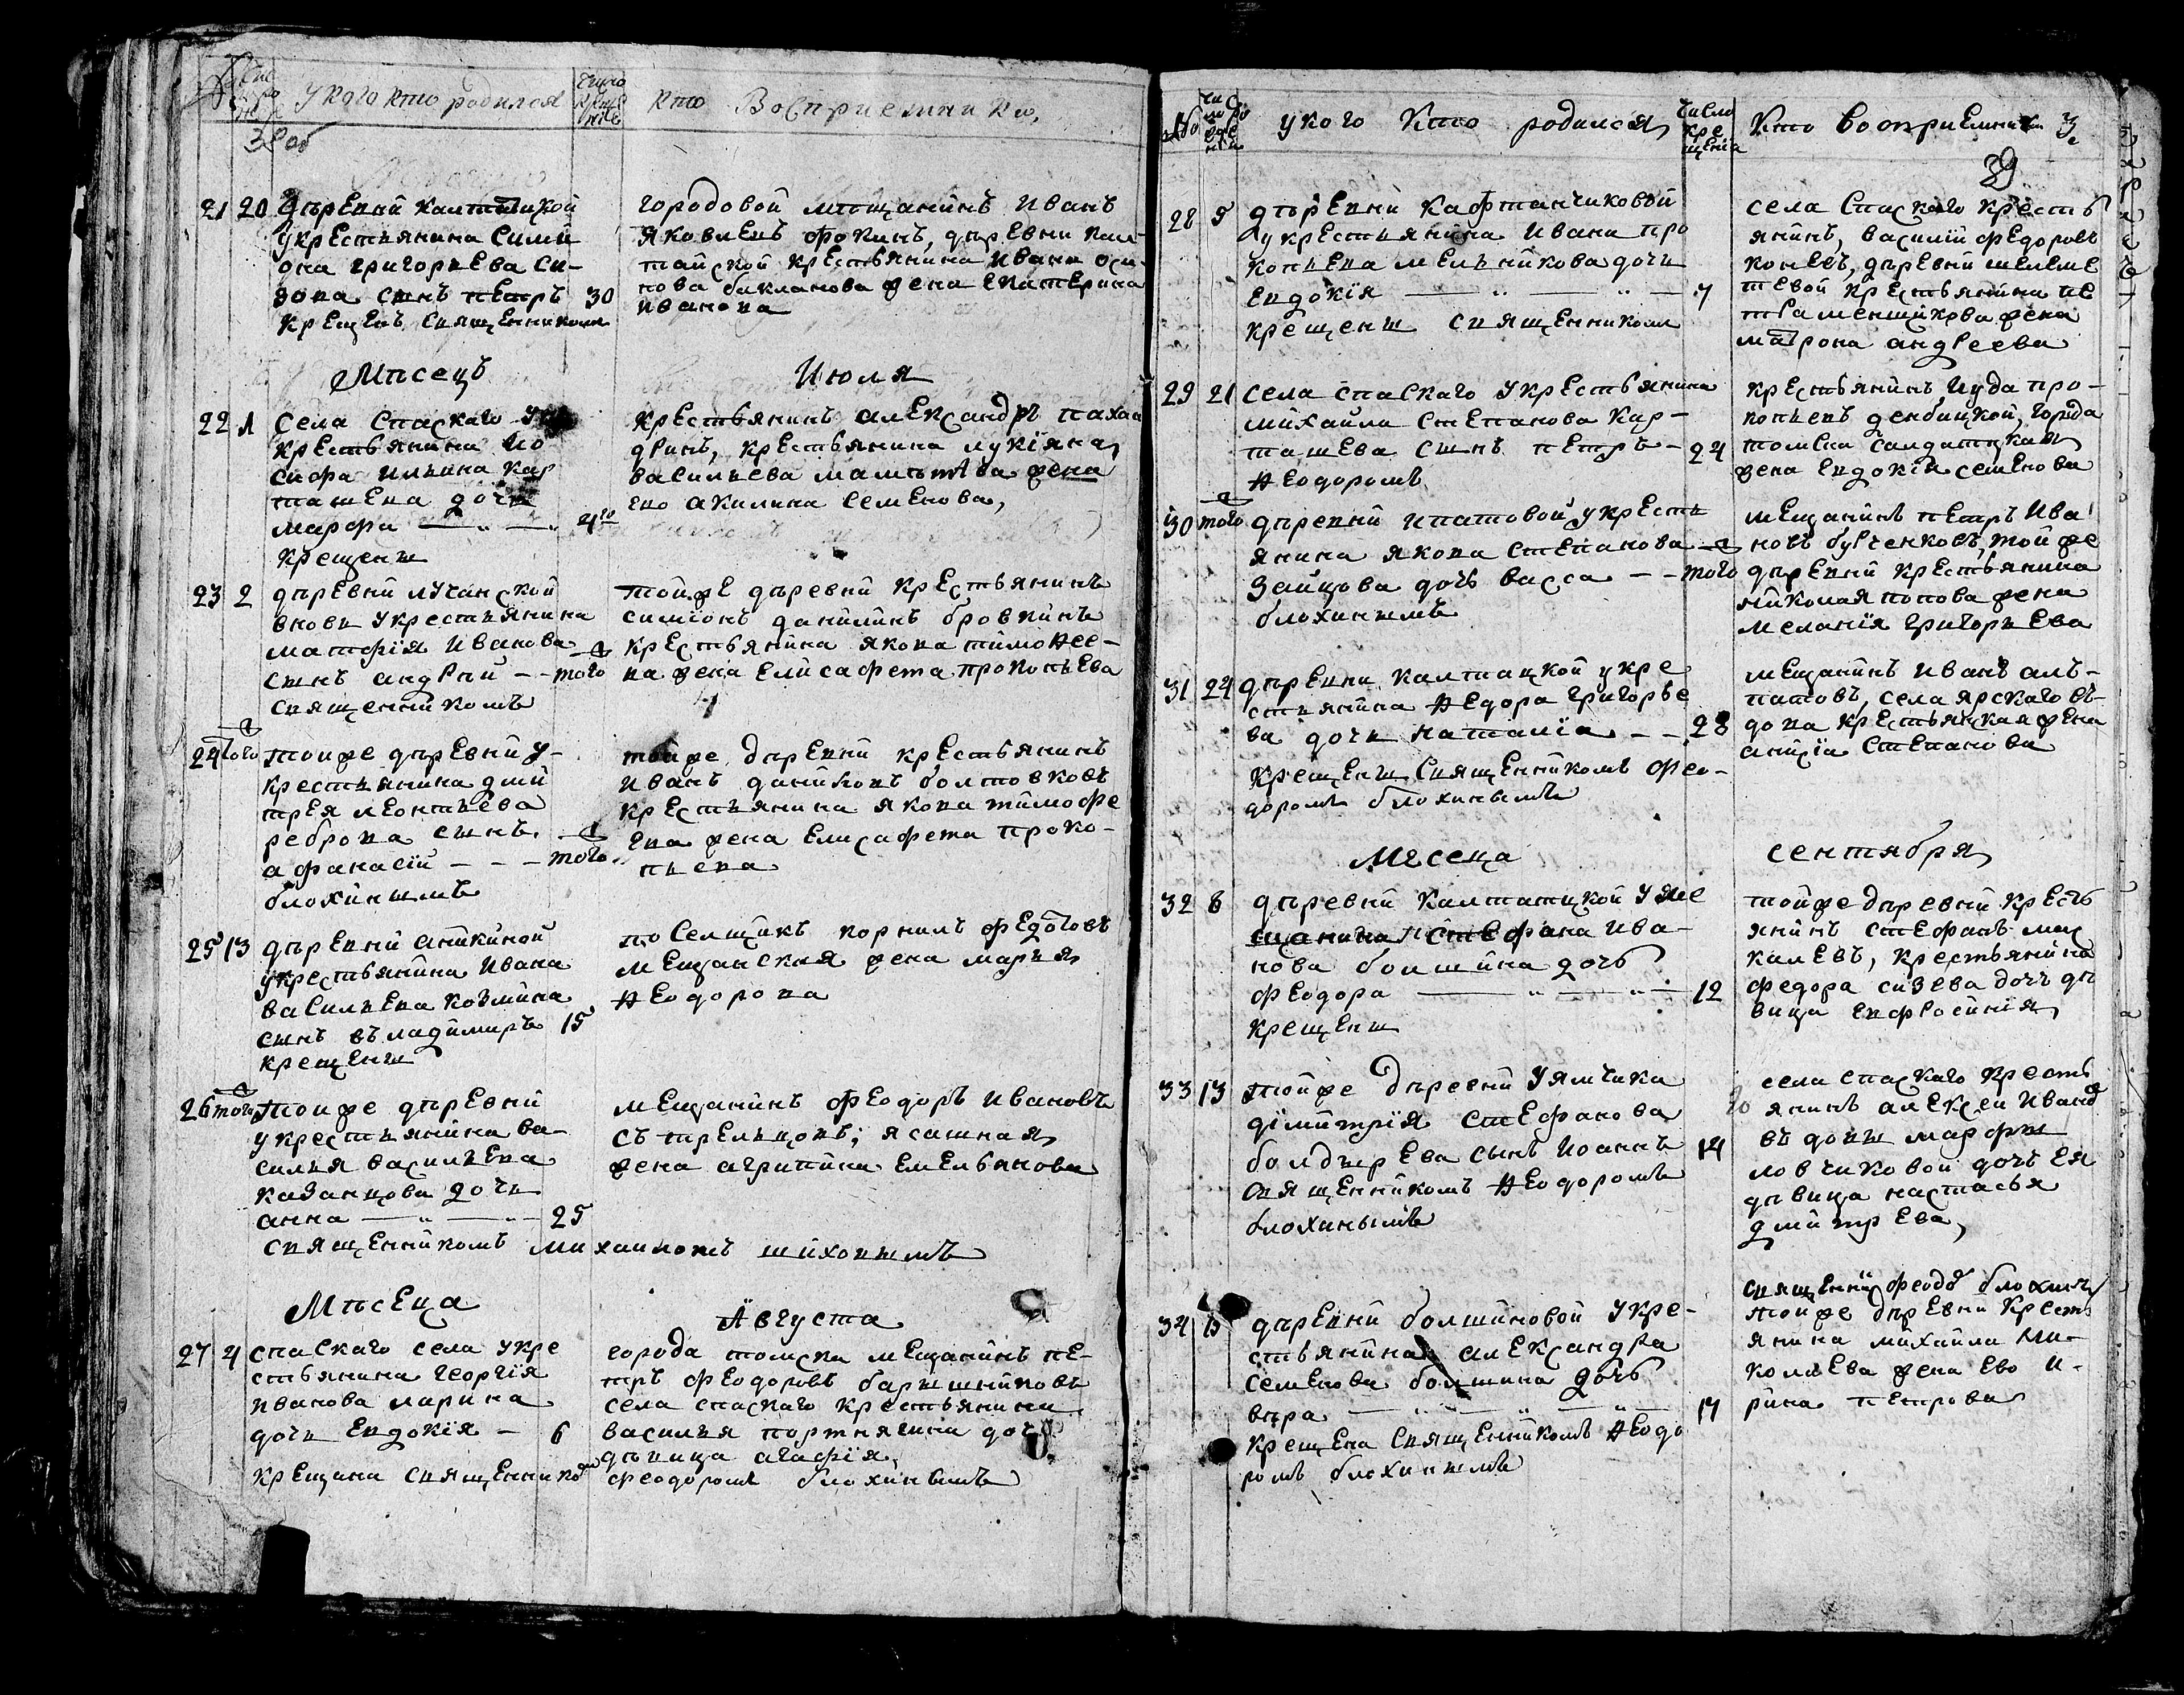 № Число рожде у кого кто родился Число крещенiе кто Восприемники,
38 об
21 20 дѣревни калтайской
у крестьянина Сими
она григорьева си-
зова сынъ петръ 30
крещенъ священникомъ
городовой мѣщанинъ иванъ
яковлевъ фокинъ, дѣревни кал-
тайской крестьянина ивана оси-
пова бакланова жена екатерина
иванова
Мѣсецъ Июля
22 1 села спаскаго у
крестьянина Ио
сифа ильина кар
ташева дочь
марфа 4го
крещены
крестьянинъ александръ паха
лукiяна
васильева мамъ жена
ево акилина семенова,
23 2 дѣревни лучанской
вновь у крестьянина
матфiя иванова
сынъ андрѣй - - того
священникомъ
тойже дѣревни крестьянинъ
симiонъ данилинъ бровкинъ
крестьянина якова тимоѳее-
ва жена елисафета прокопьева
24 того тойже дѣревни у-
крестьянина дми
трея леонтьева
реброва сынъ.
афанасiй - - - того
блохинымъ
тойже дѣревни крестьянинъ
иванъ болтовковъ
крестьянина якова тимофе
ева жена елисафета проко-
пьева
25 13 дѣревни аникиной
у крестьянина ивана
васильева козмина
сынъ въладимиръ 15
крещены
поселщикъ корнилъ федотовъ
мещанская жена марья
ѳеодорова
26 того тойже дѣревни
у крестьянина ва-
силья васильева
казанцова дочь
анна 25
священникомъ михаиломъ шиховымъ
мещанинъ феодоръ ивановъ
съ трельцовъ; ясашная
жена агрипина емельянова
Мѣсеца Августа
27 4 спаскаго села у кре
стьянина георгiя
иванова ларина
дочь евдокiя - 6
крещина священникомъ феодоромъ блохинымъ
города томска мещанинъ пе-
тръ феодоровъ барышниковъ
села спаскаго крестьянина
василья портнягина доч
дѣвица агафiя
№ число рожде нiя у кого кто родился число крещенiя кто восприемники
39
28 5 дѣревни кафтанчиковой
у крестьянина ивана про
копьева мельникова дочь
евдокiя 7
крещены священникомъ
села спаскаго кресть
янинъ, василiй федоровъ
коневъ, дѣревни
тевой крестьянина пе
тра менщикова жена
матрона андреева
29 21 села спаскаго у крестьянина
михаила степанова кар-
ташева сынъ петръ - 24
ѳеодоромъ
крестьянинъ iуда про-
копьевъ города
томска салдатская
жена евдокiя семенова
30 того дѣревни ипатовой у кресть
янина якова степанова
зайцова дочь васса - - того
блохинымъ
мещанинъ петръ ива
новъ бурченковъ, той же
дѣревни крестьянина
николая попова жена
меланiя григорьева
31 24 дѣревни калтайской у кре
стьянина ѳедора григорье
ва дочь наталiя - - 28
крещены священникомъ фео-
доромъ блохинымъ
мещанинъ иванъ алъ-
патовъ, села ярскаго въ-
дова крестьянская жена
степанова
Мѣсеца сентября
32 8 дѣревни калтайской у ме
щанина стефана ива-
нова болшина дочь
феодора 12
крещены
тойже дѣревни кресть
янинъ стефанъ мас
калевъ, крестьянина
федора сизева дочь дѣ
вица
33 13 тойже дѣревни у ямщика
дiмитрiя стефанова
болдырева сынъ иоаннъ 14
священникомъ ѳеодоромъ
блохинымъ
села спаскаго кресть
янинъ алексеи ивано
въ довы марфы
ловчиковой дочь ея
дѣвица настасья
дмитрева,
34 15 дѣревни болшиновой у кре-
стьянина александра
семенова болшина дочь
вѣра 17
крещена священникомъ ѳеодо
ромъ блохинымъ
священни феодо блохинъ
тойже дѣревни кресть
янина михаила ми-
жена ево и-
рина петрова